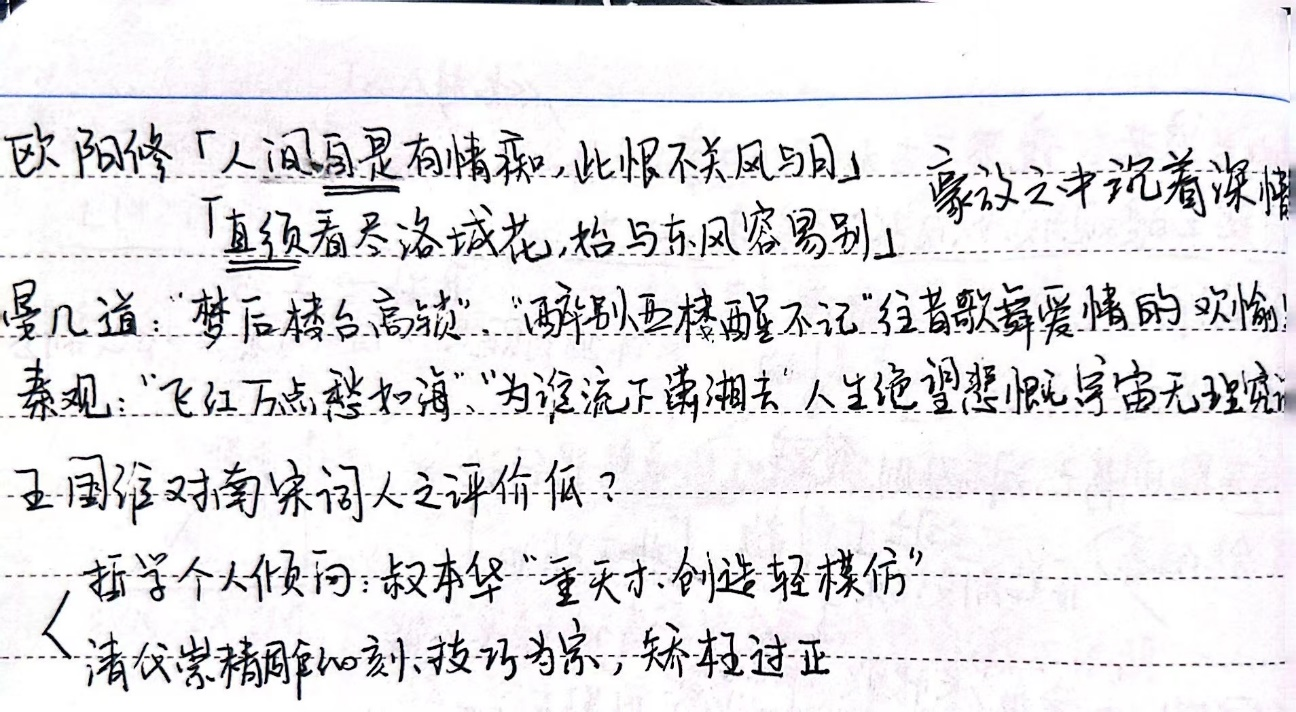 欧阳修「人间自是有情痴，此恨不关风与月」 豪放之中沉着深情
「直须看尽洛城花，始与东风容易别」
晏几道："梦后楼台高锁"、"醉别西楼醒不记"往昔歌舞爱情的欢愉
秦观："飞红万点愁如海"、"为谁流下潇湘去"人生绝望悲慨宇宙无理究
王国维对南宋词人之评价低？
哲学个人倾向：叔本华"重天才、创造轻模仿"
清代崇精雕细刻、技巧为宗，矫枉过正